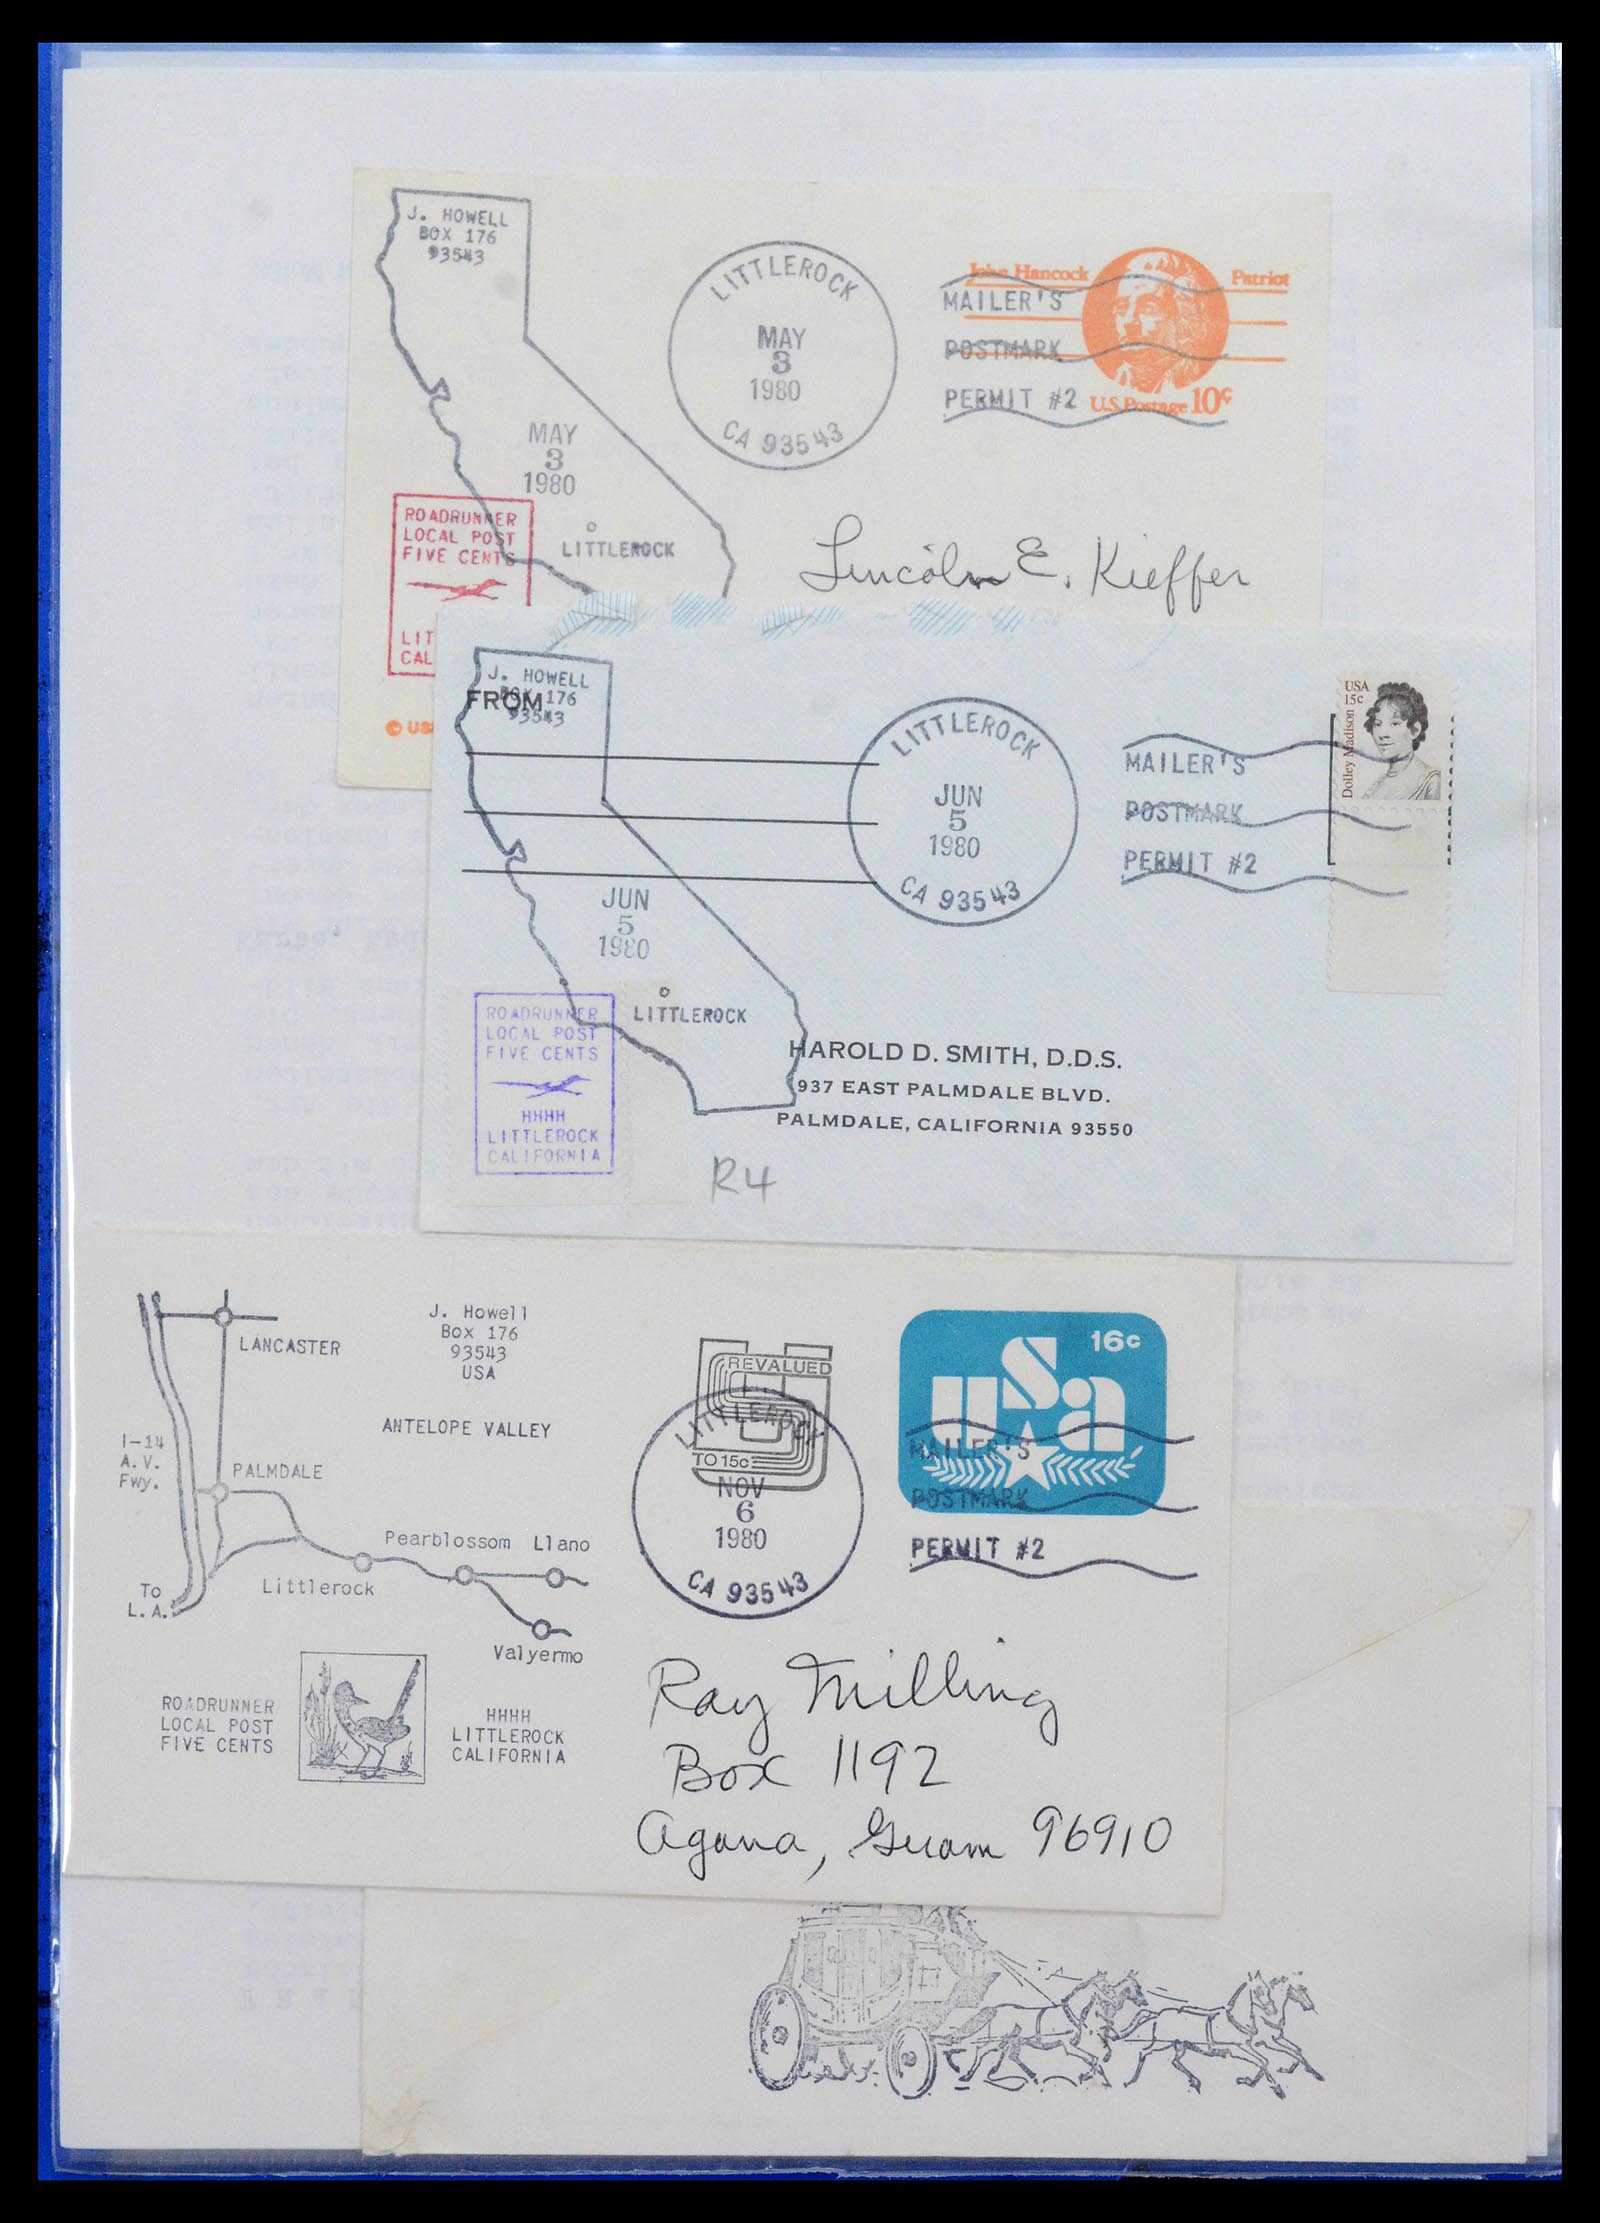 J. HOWELL
BOX 176
93543
LITTLEROCK
MAY
3
1980
CA 93543
John Hancock
Patriot
MAILER'S
POSTMARK
PERMIT #2
U.S. Postage 10¢
MAY
3
1980
LITTLEROCK
ROADRUNNER
LOCAL POST
FIVE CENTS
LIT
CAL
Lincoln E. Kieffer
© US
J. HOWELL
BOX 176
93543
FROM
LITTLEROCK
JUN
5
1980
CA 93543
MAILER'S
POSTMARK
PERMIT #2
USA
15c
Dolley Madison
JUN
5
1980
LITTLEROCK
ROADRUNNER
LOCAL POST
FIVE CENTS
HHHH
LITTLEROCK
CALIFORNIA
HAROLD D. SMITH, D.D.S.
937 EAST PALMDALE BLVD.
PALMDALE, CALIFORNIA 93550
R4
LANCASTER
J. Howell
Box 176
93543
USA
ANTELOPE VALLEY
I-14
A.V.
Fwy.
PALMDALE
Pearblossom Llano
Littlerock
To
L.A.
Valyermo
REVALUED
TO 15c
LITTLEROCK
NOV
6
1980
CA 93543
16c
USA
MAILER'S
POSTMARK
PERMIT #2
ROADRUNNER
LOCAL POST
FIVE CENTS
HHHH
LITTLEROCK
CALIFORNIA
Ray Milling
Box 1192
Agana, Guam 96910